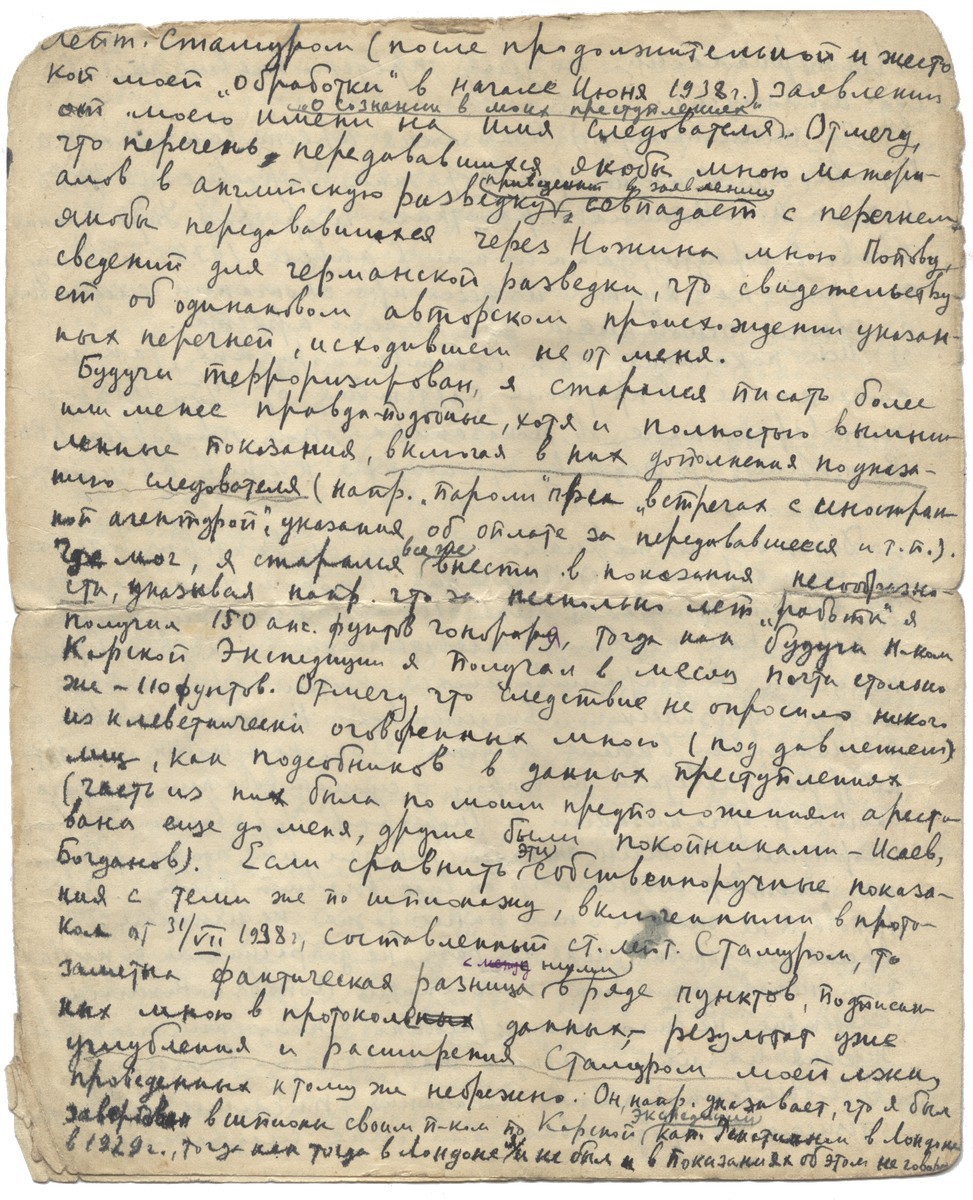 лейт. Стамуром (после продолжительной и жесто
кой моей „обработки“ в начале Июня 1938 г.) заявлении
„о сознании в моих преступлениях“
от моего имени на имя следователя. Отмечу,
что перечень передававшихся якобы мною матери-
(приведенный в заявлении)
алов в английскую разведку, совпадает с перечнем
якобы передававшихся через Ножина мною Попову,
сведений для германской разведки, что свидетельству
ет об одинаковом авторском происхождении указан-
ных перечней, исходившем не от меня.
Будучи терроризирован, я старался писать более
или менее правдоподобные, хотя и полностью вымыш
ленные показания, включая в них дополнения по указа-
нию следователя (напр. „пароли“ при „встречах с иностран-
ной агентурой“, указания об оплате за передававшееся и т.п.).
все же
Где мог, я старался внести в показания несообразно-
сти, указывая напр. что за несколько лет „работы“ я
получил 150 анг. фунтов гонорара, тогда как будучи н-ком
Карской Экспедиции я получал в месяц почти столько
же – 110 фунтов. Отмечу, что следствие не опросило никого
из клеветнически оговоренных мною (под давлением)
лиц, как пособников в данных преступлениях
(часть из них была по моим предположениям аресто-
вана еще до меня, другие были покойниками – Исаев,
эти
Богданов). Если сравнить собственноручные показа-
ния с теми же по шпионажу, включенными в прото-
кол от 31/VII 1938 г., составленный ст. лейт. Стамуром, то
между ними
заметна фактическая разница в ряде пунктов, подписан-
ных мною в протокольных данных, – результат уже
углубления и расширения Стамуром моей лжи,
проведенных к тому же небрежно. Он, напр. указывает, что я был
Экспедиции
завербован в шпионы своим п-ком по Карской кап. в Лондоне
в 1929 г., тогда как тогда в Лондоне я и не был и в показаниях об этом не говорил